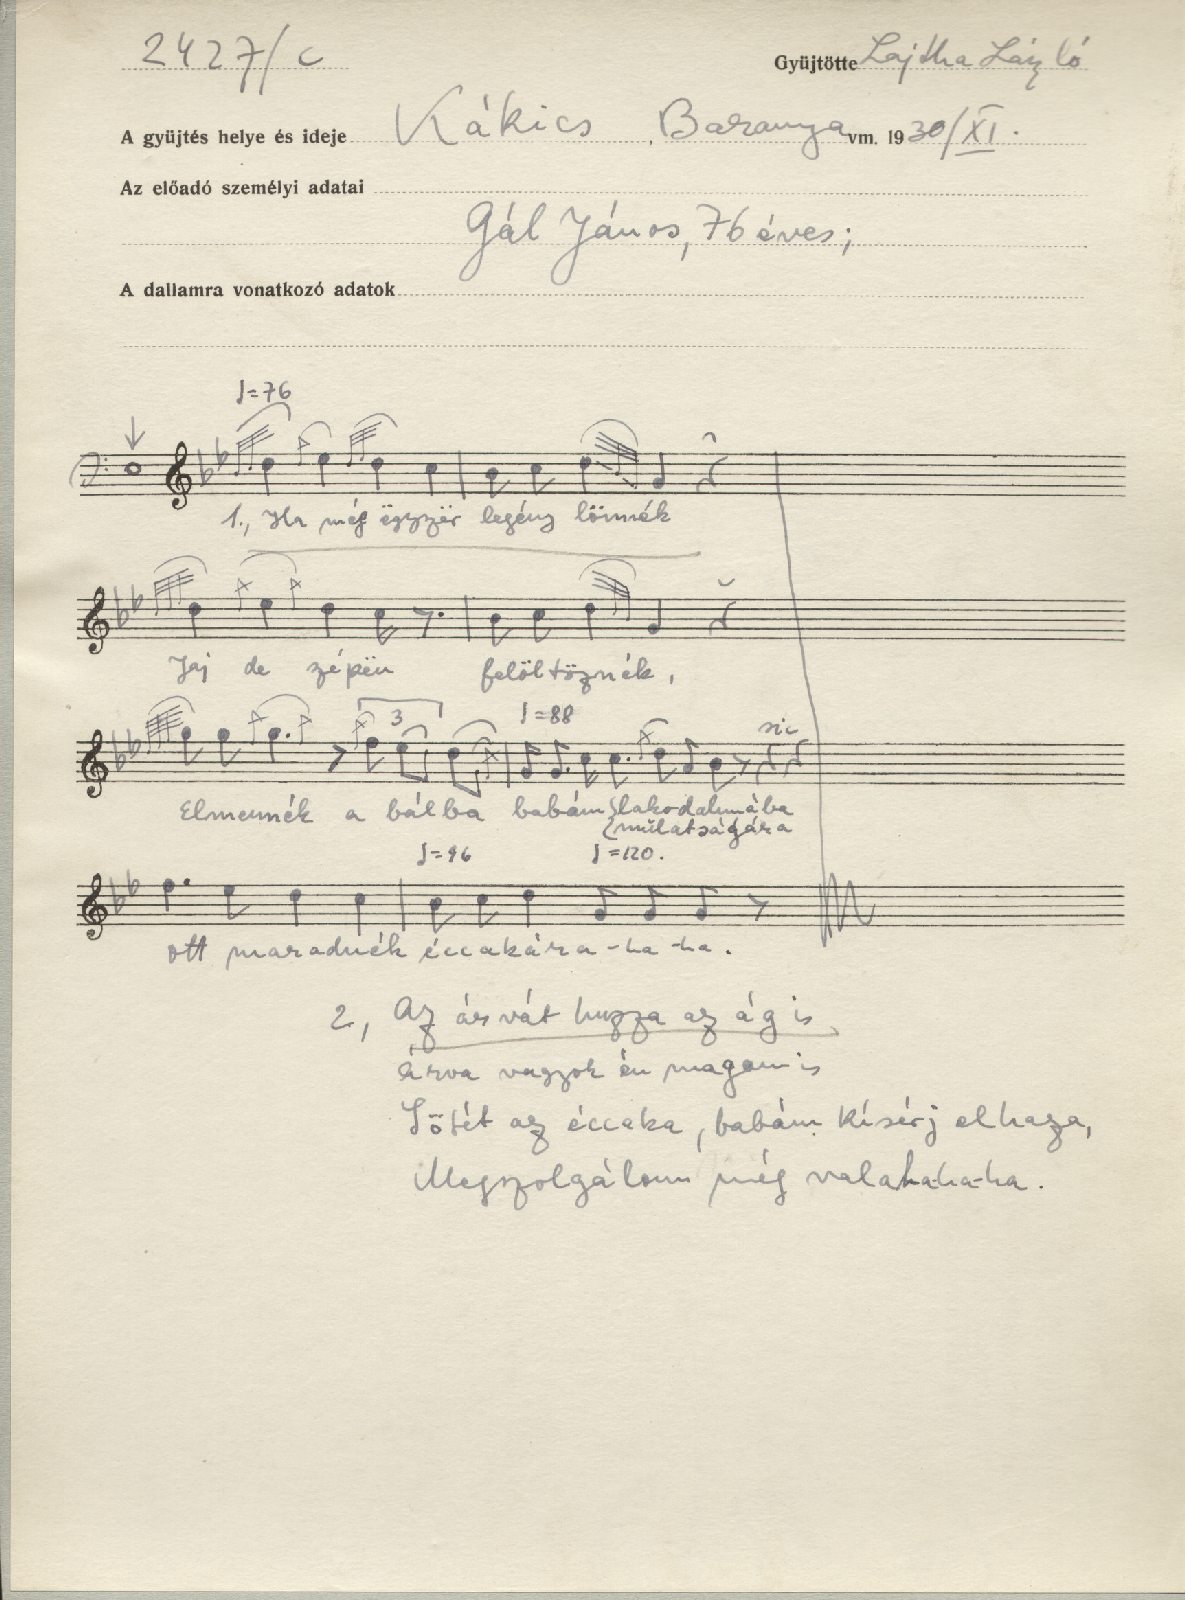 2427/c
Gyüjtötte Lajtha László
A gyüjtés helye és ideje Kákics, Baranya vm. 1930/XI.
Az előadó személyi adatai
Gál János, 76 éves;
A dallamra vonatkozó adatok
♩=76
1., Ha még ëgyszër legény lönnék
Jaj de szépën
felöltöznék,
3
♩=88
sic
Elmennék a bálba babám {lakodalmába
{mulatságára
♩=96
♩=120.
ott maradnék éccakára-ha-ha.
2, Az ágvát huzza az ág is
árva vagyok én magam is
Sötét az éccaka, babám kísérj el haza,
Megszolgálom még valaha-ha-ha.